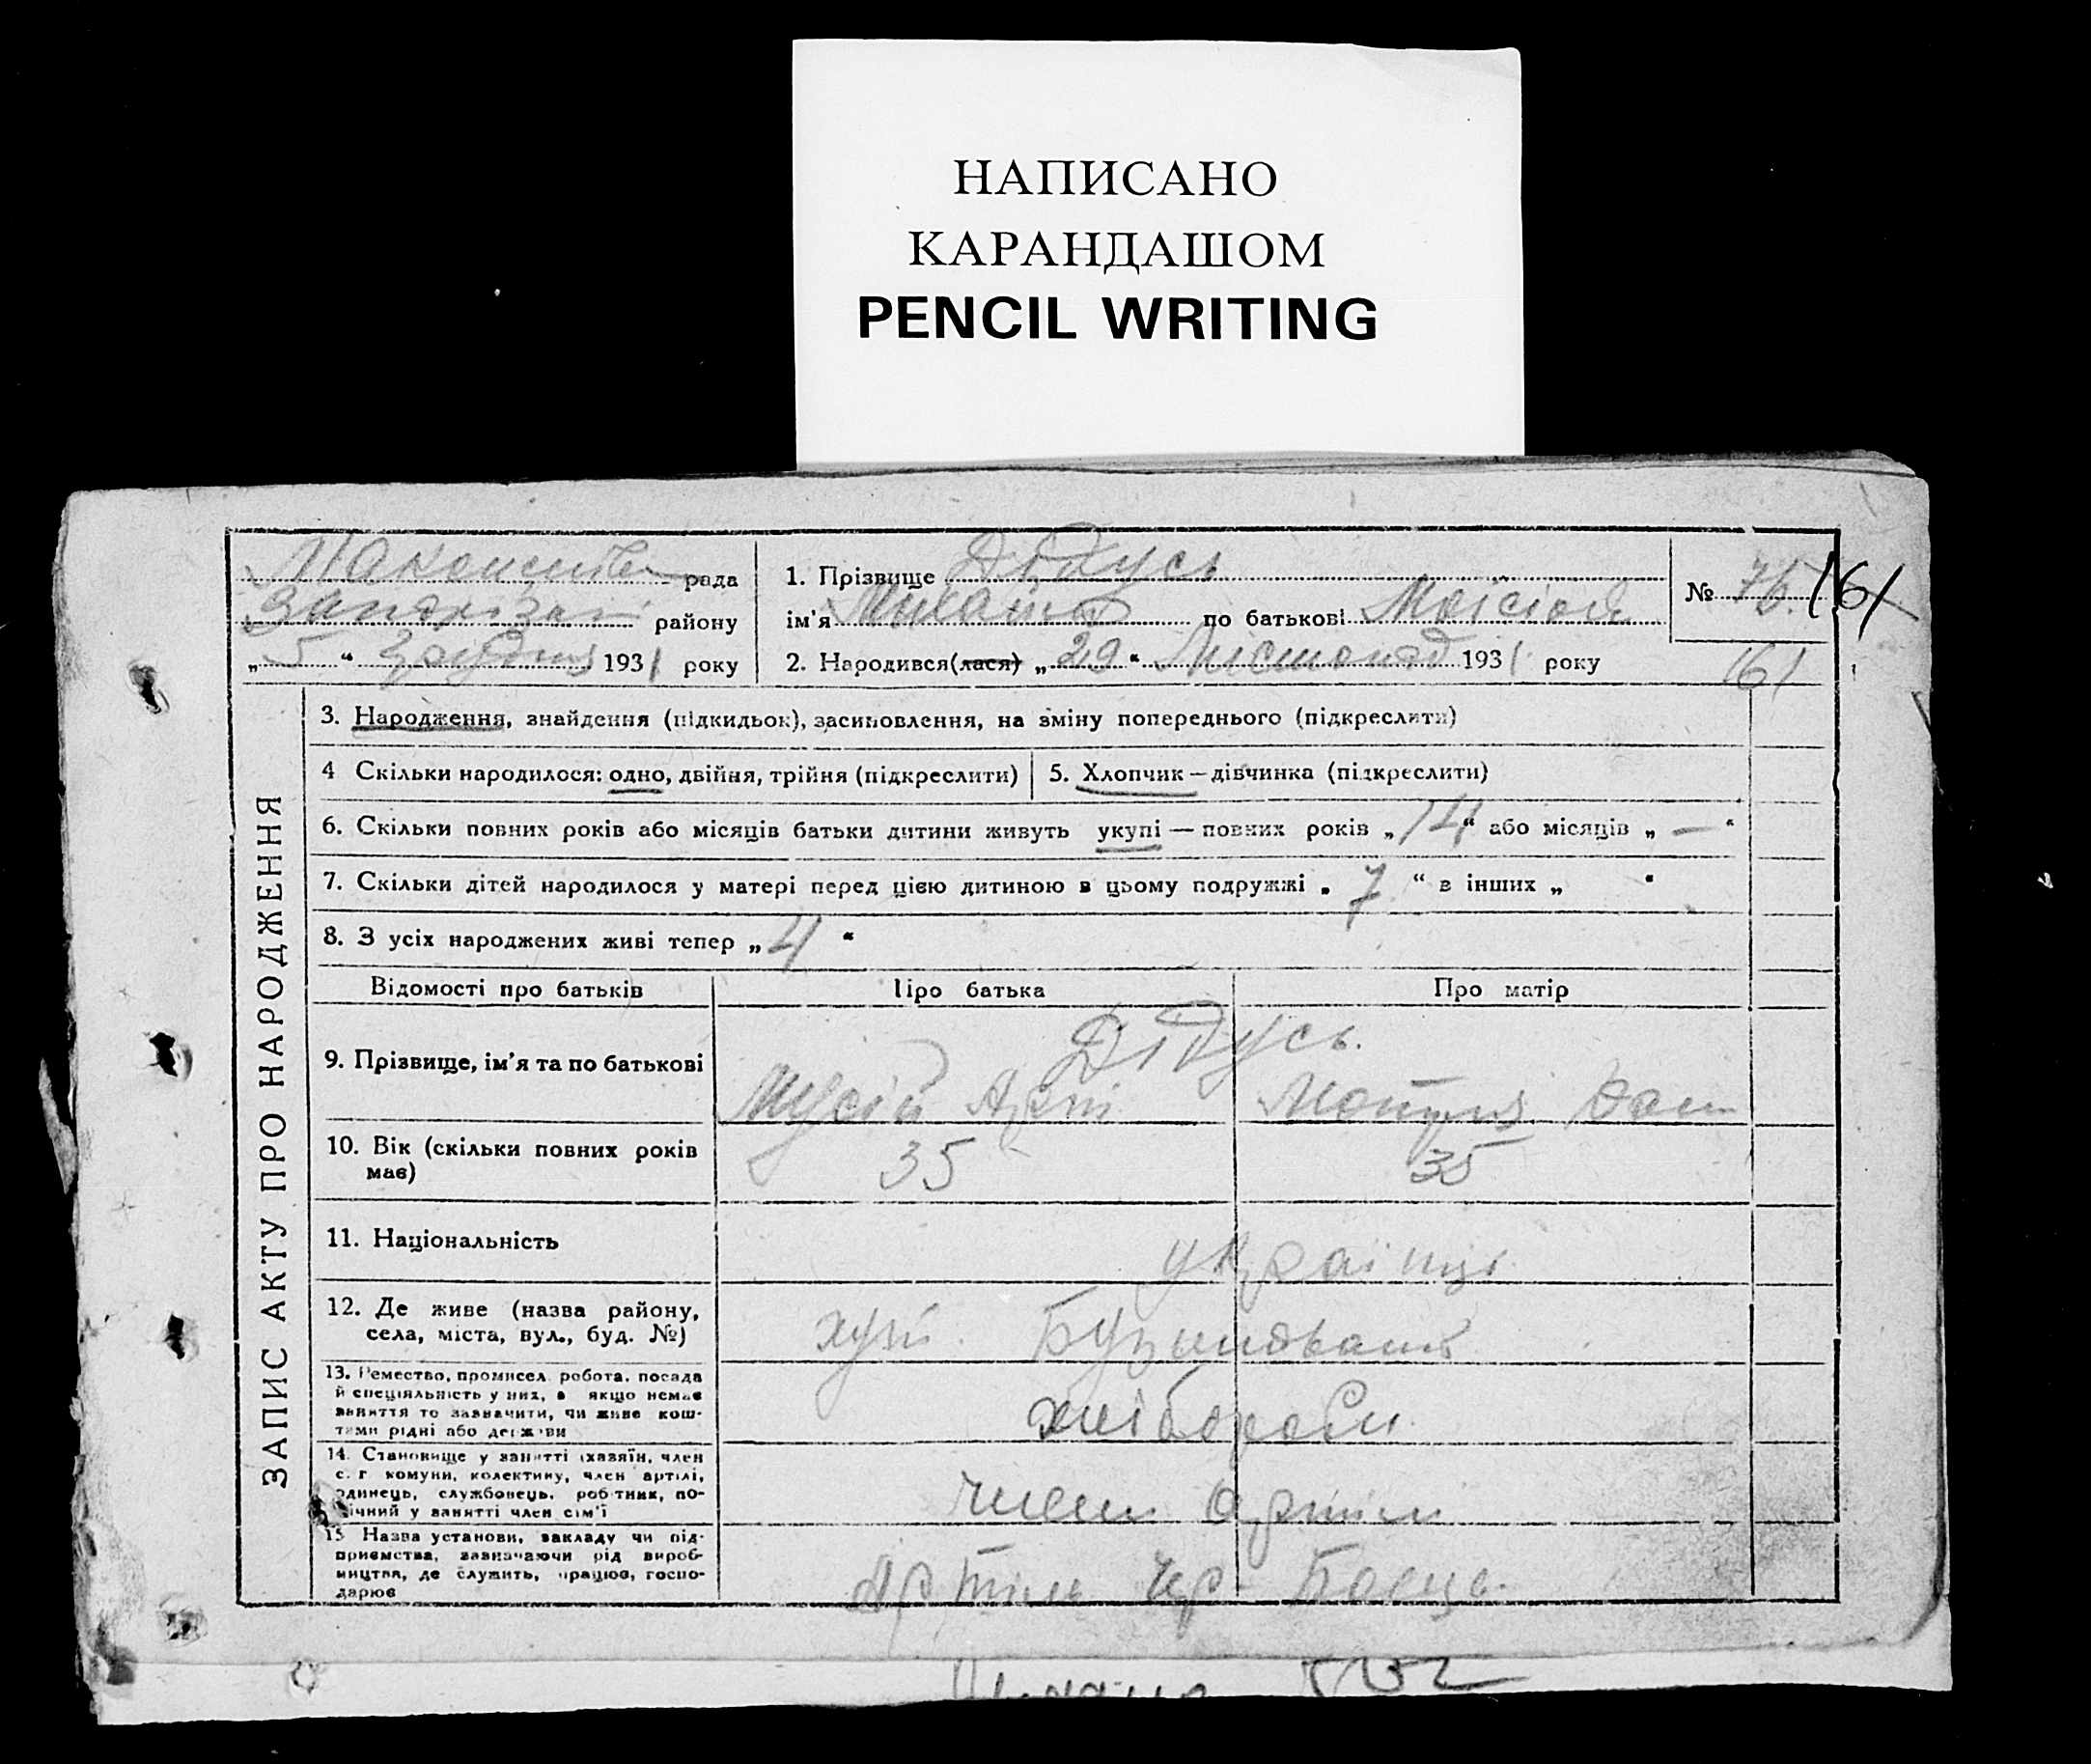 НАПИСАНО
КАРАНДАШОМ
PENCIL WRITING
рада
району
„ 5 “ грудня 1931 року
1. Прізвище Дідусь
ім'я Михайло по батькові
2. Народився(лася) „ 29 “ Листопад 1931 року
№ 75. 161
161
ЗАПИС АКТУ ПРО НАРОДЖЕННЯ
3. Народження, знайдення (підкидьок), засиновлення, на зміну попереднього (підкреслити)
4 Скільки народилося: одно, двійня, трійня (підкреслити)
5. Хлопчик — дівчинка (підкреслити)
6. Скільки повних років або місяців батьки дитини живуть укупі — повних років „ 14 “ або місяців „ — “
7. Скільки дітей народилося у матері перед цією дитиною в цьому подружжі „ 7 “ в інших „ “
8. З усіх народжених живі тепер „ 4 “
Відомості про батьків
Про батька
Про матір
9. Прізвище, ім'я та по батькові
Дідусь.
Мусій Арт
Мотря
10. Вік (скільки повних років
має)
35
35
11. Національність
українці
12. Де живе (назва району,
села, міста, вул., буд. №)
хут.
13. Ремество, промисел, робота, посада
й спеціяльність у них, а якщо немає
заняття то зазначити, чи живе кош-
тами рідні або держави
хлібороби
14. Становище у занятті (хазяїн, член
с. г комуни, колективу, член артілі,
одинець, службовець, робітник, по-
мічний у занятті член сім'ї
члени артілі
15 Назва установи, закладу чи під-
приємства, зазначаючи рід вироб-
ництва, де служить, працює, госпо-
дарює
Артіль Чер